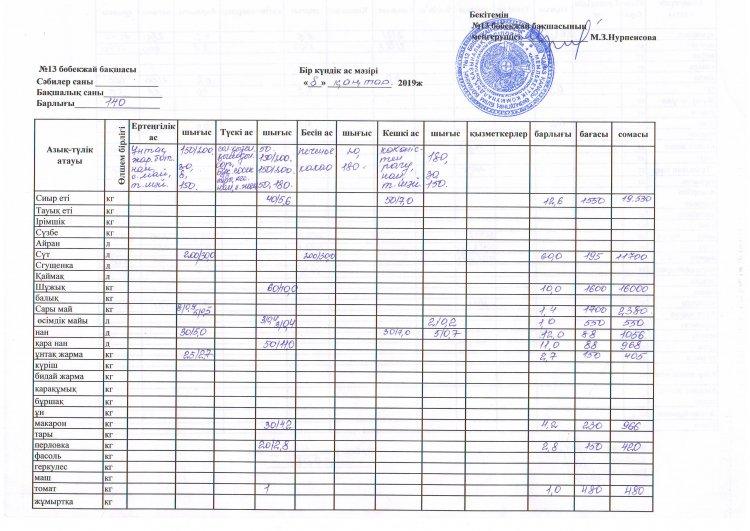 Бекітемін
№13 бөбекжай бақшасының
меңгерушісі
М.З.Нурпеисова
№13 бөбекжай бақшасы
Сәбилер саны
Бақшалық саны
Барлығы 140
Бір күндік ас мәзірі
«8» қаңтар 2019ж
Азық-түлік атауы Өлшем бірлігі Ертеңгілік ас шығыс Түскі ас шығыс Бесін ас шығыс Кешкі ас шығыс қызметкерлер барлығы бағасы сомасы
Ұнтақ 150/200 50. печенье 20, 180,
жар. бот. 150/200.
нан, 30, 150/300 какао 180. рагу, 30
с.май, 8, нан, 150.
т.шәй. 150. 50, 180. т.шәй
Сиыр еті кг 40/5,6 50/7,0 12,6 1550 19.530
Тауық еті кг
Ірімшік кг
Сүзбе кг
Айран л
Сүт л 200/300 200/300 60,0 195 11700
Сгущенка л
Қаймақ л
Шұжық кг 60/10,0 10,0 1600 16000
балық кг
Сары май кг 1,4 1700 2.380
өсімдік майы кг 3/0,4 2/0,2 1,0 550 550
нан д 30/5,0 30/7,0 5/0,7 12,0 88 1056
қара нан д 50/110 11,0 88 968
ұнтақ жарма кг 25/2,7 2,7 150 405
күріш кг
бидай жарма кг
қарақұмық кг
бұршақ кг
ұн кг
макарон кг 30/4,2 4,2 230 966
тары кг
перловка кг 20/2,8 2,8 150 420
фасоль кг
геркулес кг
маш кг
томат кг 1 1,0 480 480
жұмыртқа кг